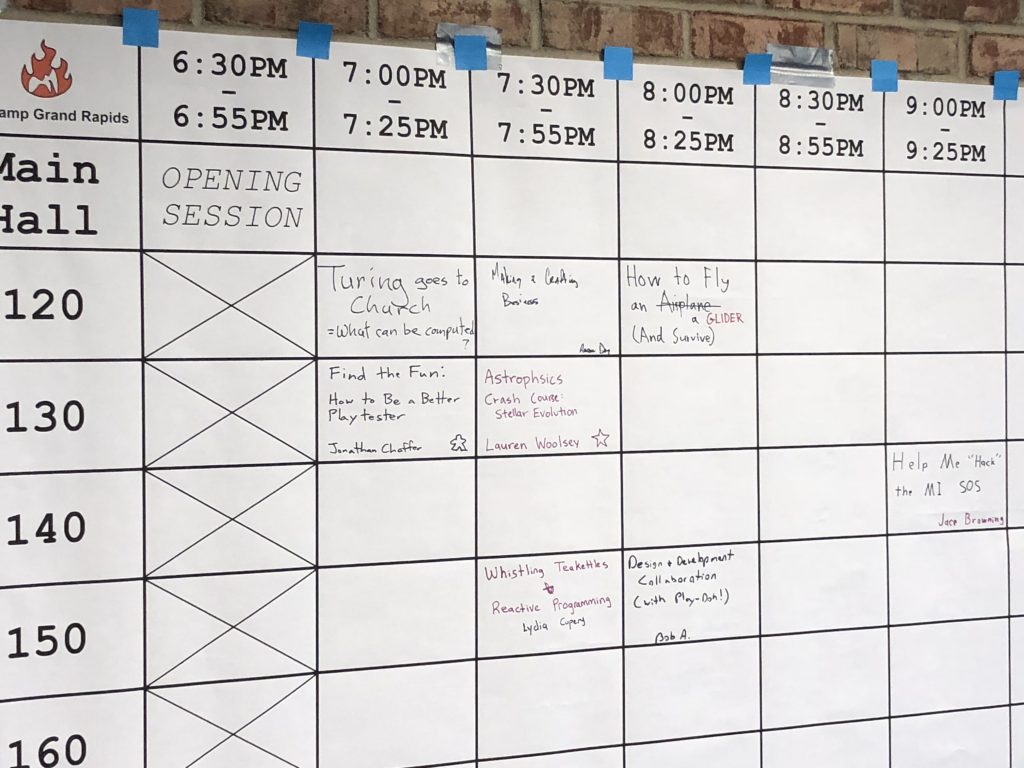 amp Grand Rapids
6:30PM
–
6:55PM
7:00PM
–
7:25PM
7:30PM
–
7:55PM
8:00PM
–
8:25PM
8:30PM
–
8:55PM
9:00PM
–
9:25PM
Main
Hall
OPENING
SESSION
120
Turing goes to
Church
=What can be computed
?
Making & Crafting
Business
How to Fly
an Airplane
a GLIDER
(And Survive)
130
Find the Fun:
How to Be a Better
Playtester
Jonathan Chaffer
Astrophsics
Crash Course:
Stellar Evolution
Lauren Woolsey
140
Help Me "Hack"
the MI SOS
Jace Browning
150
Whistling Teakettles
Reactive Programming
Lydia Cupery
Design & Development
Collaboration
(with Play-Doh!)
Bob A.
160